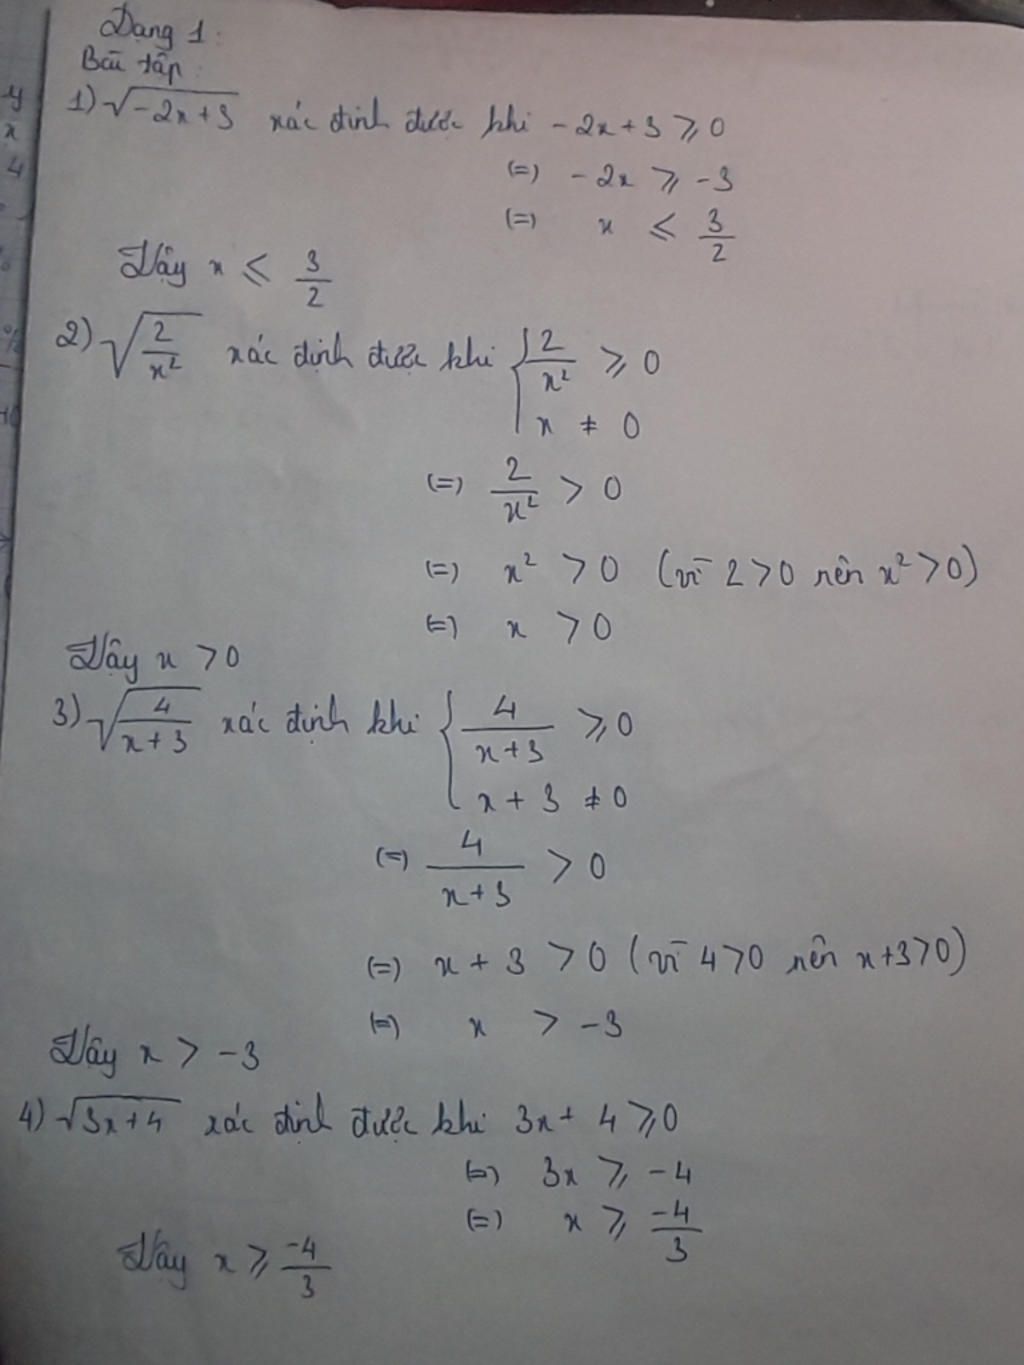 Dạng 1:
Bài tập:
1) √(-2x+3) xác định được khi -2x+3 ⩾ 0
(=) -2x ⩾ -3
(=) x ⩽ 3/2
Vậy x ⩽ 3/2
2) √(2/x²) xác định được khi { 2/x² ⩾ 0
x ≠ 0
(=) 2/x² > 0
(=) x² > 0 (vì 2>0 nên x²>0)
(=) x > 0
Vậy x > 0
3) √(4/(x+3)) xác định khi { 4/(x+3) ⩾ 0
x + 3 ≠ 0
(=) 4/(x+3) > 0
(=) x + 3 > 0 (vì 4>0 nên x+3>0)
(=) x > -3
Vậy x > -3
4) √(3x+4) xác định được khi 3x + 4 ⩾ 0
(=) 3x ⩾ -4
(=) x ⩾ -4/3
Vậy x ⩾ -4/3